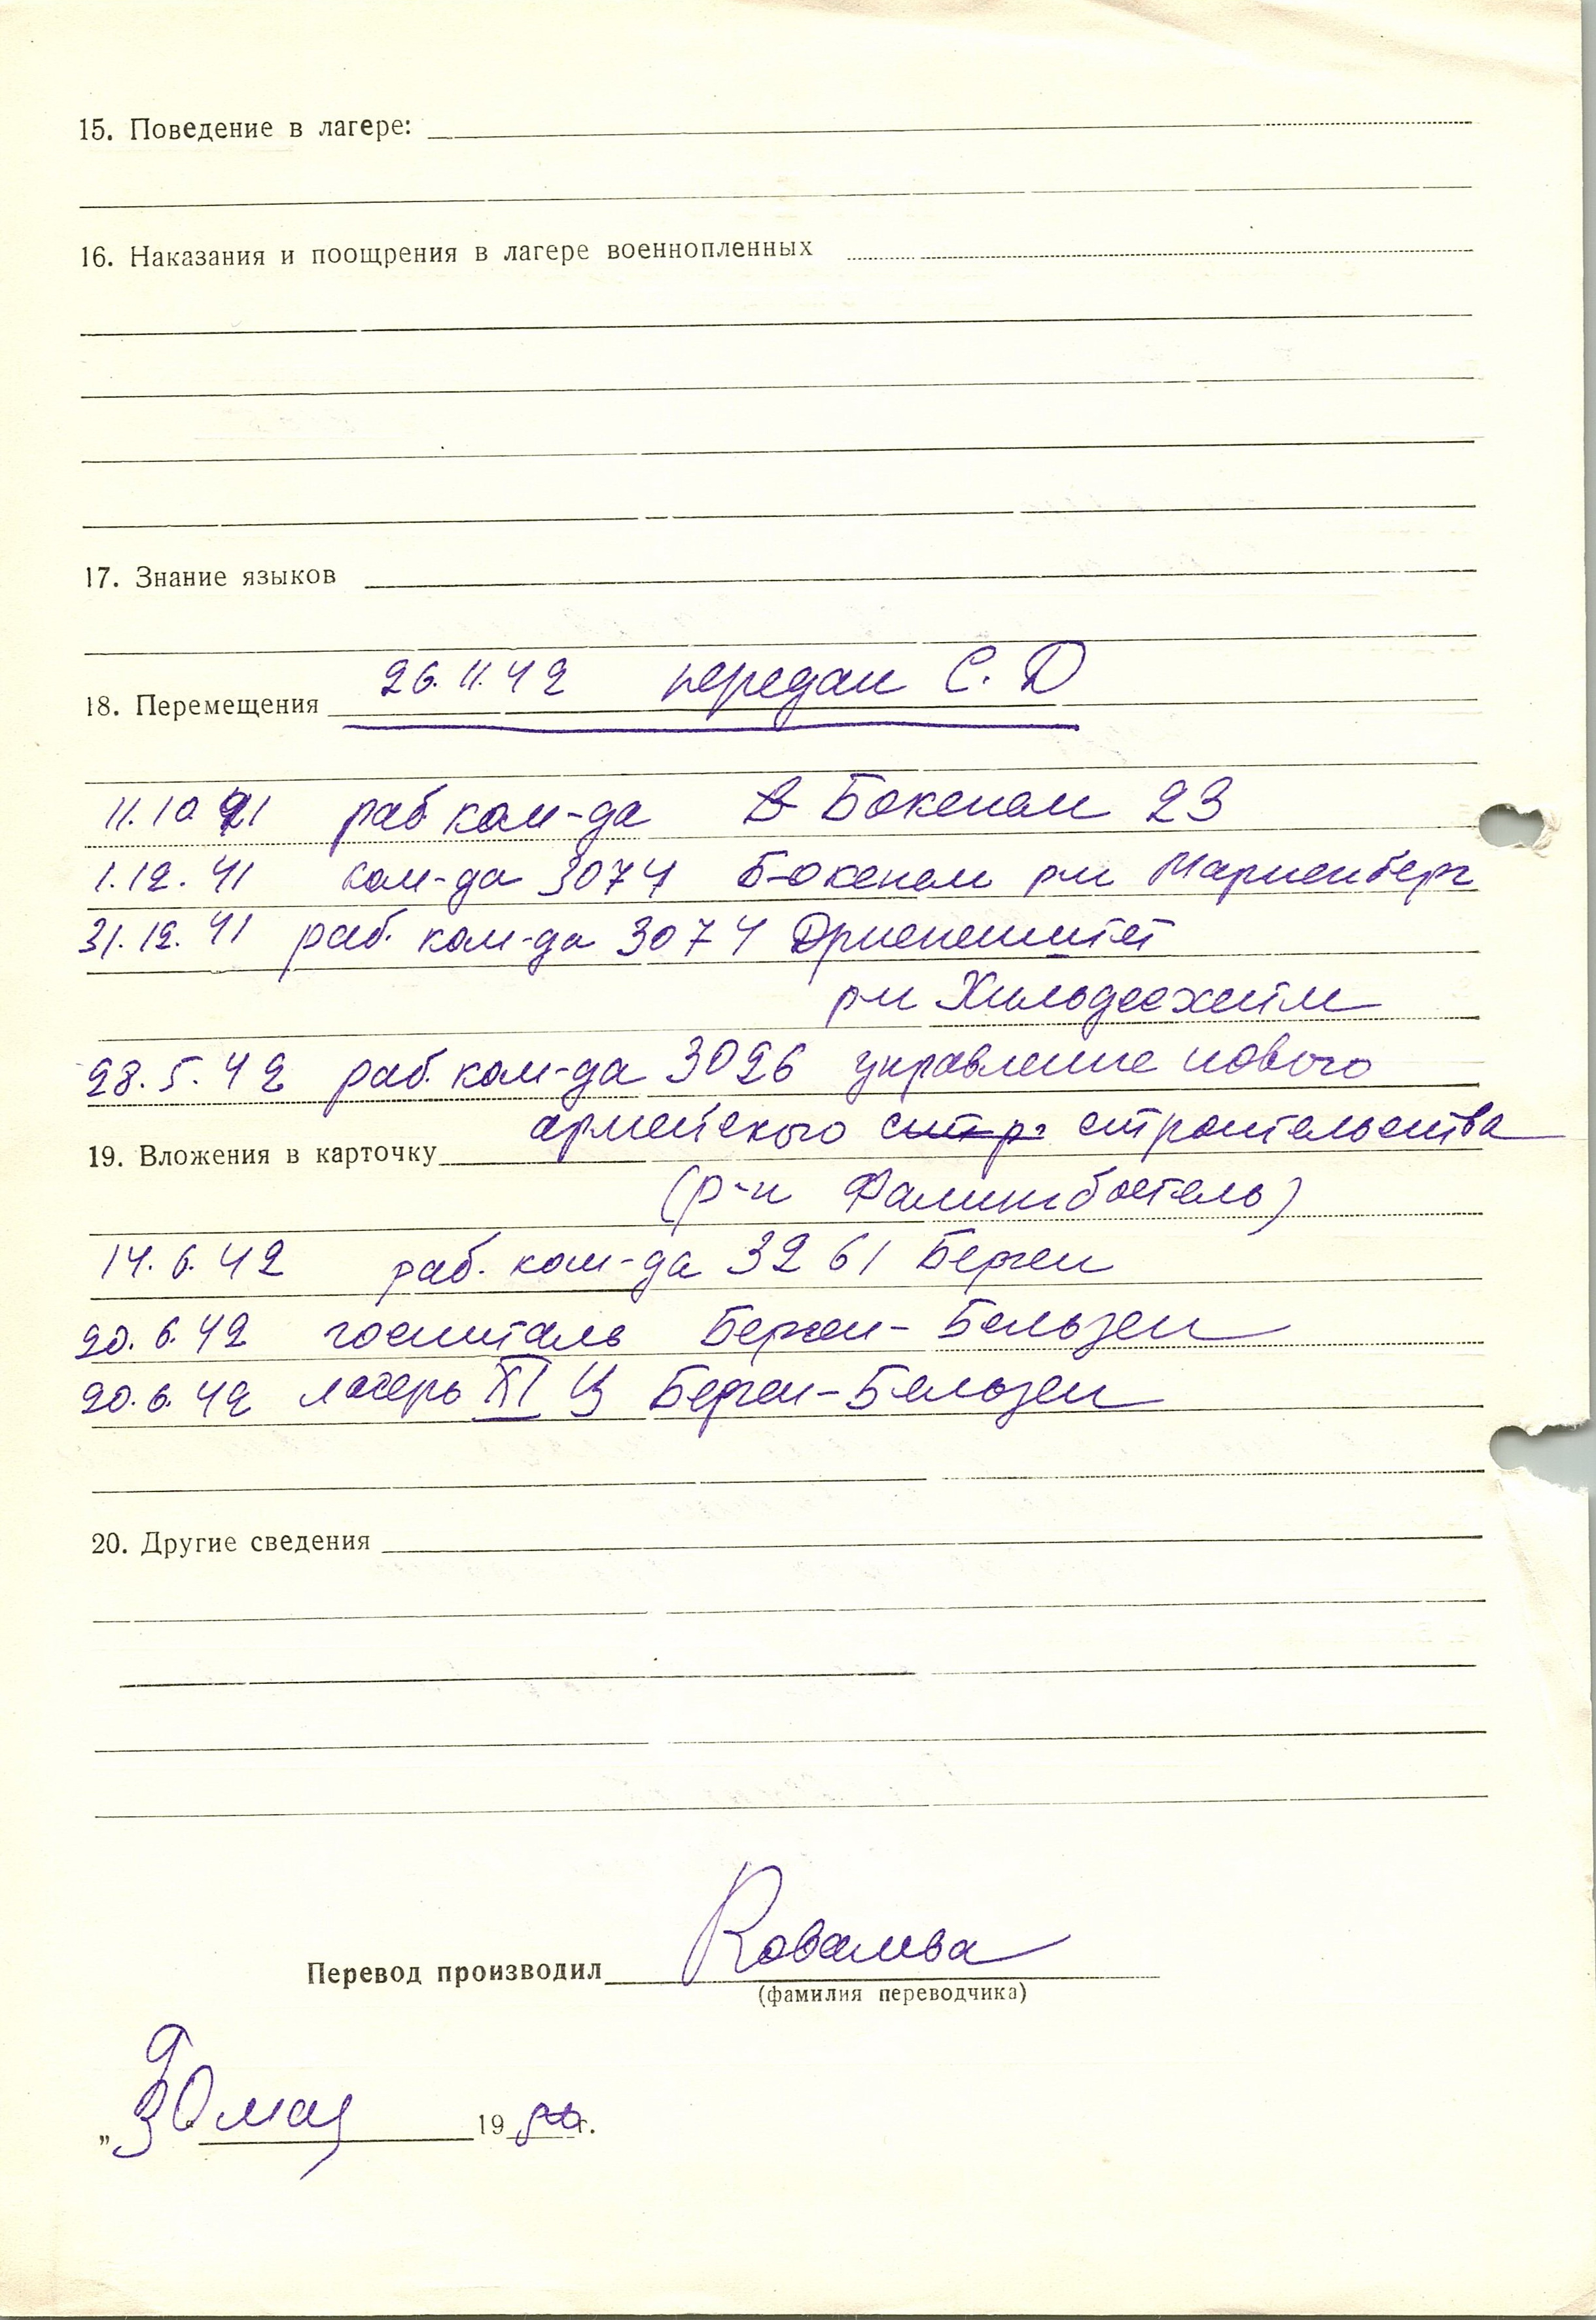 15. Поведение в лагере:
16. Наказания и поощрения в лагере военнопленных
17. Знание языков
26.11.42 передан С.Д
18. Перемещения
11.10.41 раб ком-да в Бокенем 23
1.12.41 ком-да 3074 Бокенем рн Мариенберг
31.12.41 раб. ком-да 3074
р-н Хильдесхейм
28.5.42 раб. ком-да 3026 управление нового
армейского стр. строительства
19. Вложения в карточку
(р-н Фалингбостель)
14.6.42 раб. ком-да 3261 Берген
20.6.42 госпиталь Берген-Бельзен
20.6.42 лагерь XI Ц Берген-Бельзен
20. Другие сведения
Ковалева
Перевод производил
(фамилия переводчика)
„30 мая 19 г.